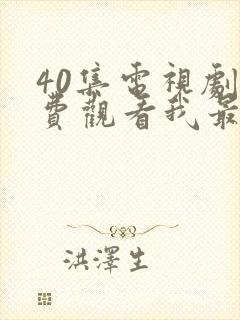 40集電視劇
費觀看我最
洪澤生